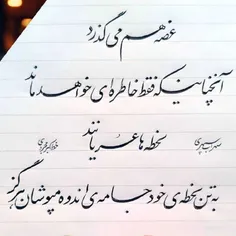 غصه هم می گذرد
آنچنانیکه فقط خاطره ای خواهد ماند
لحظه ها عریانند
به تن لحظه ی خود جامه ی اندوه مپوشان هرگز
سهراب سپهری